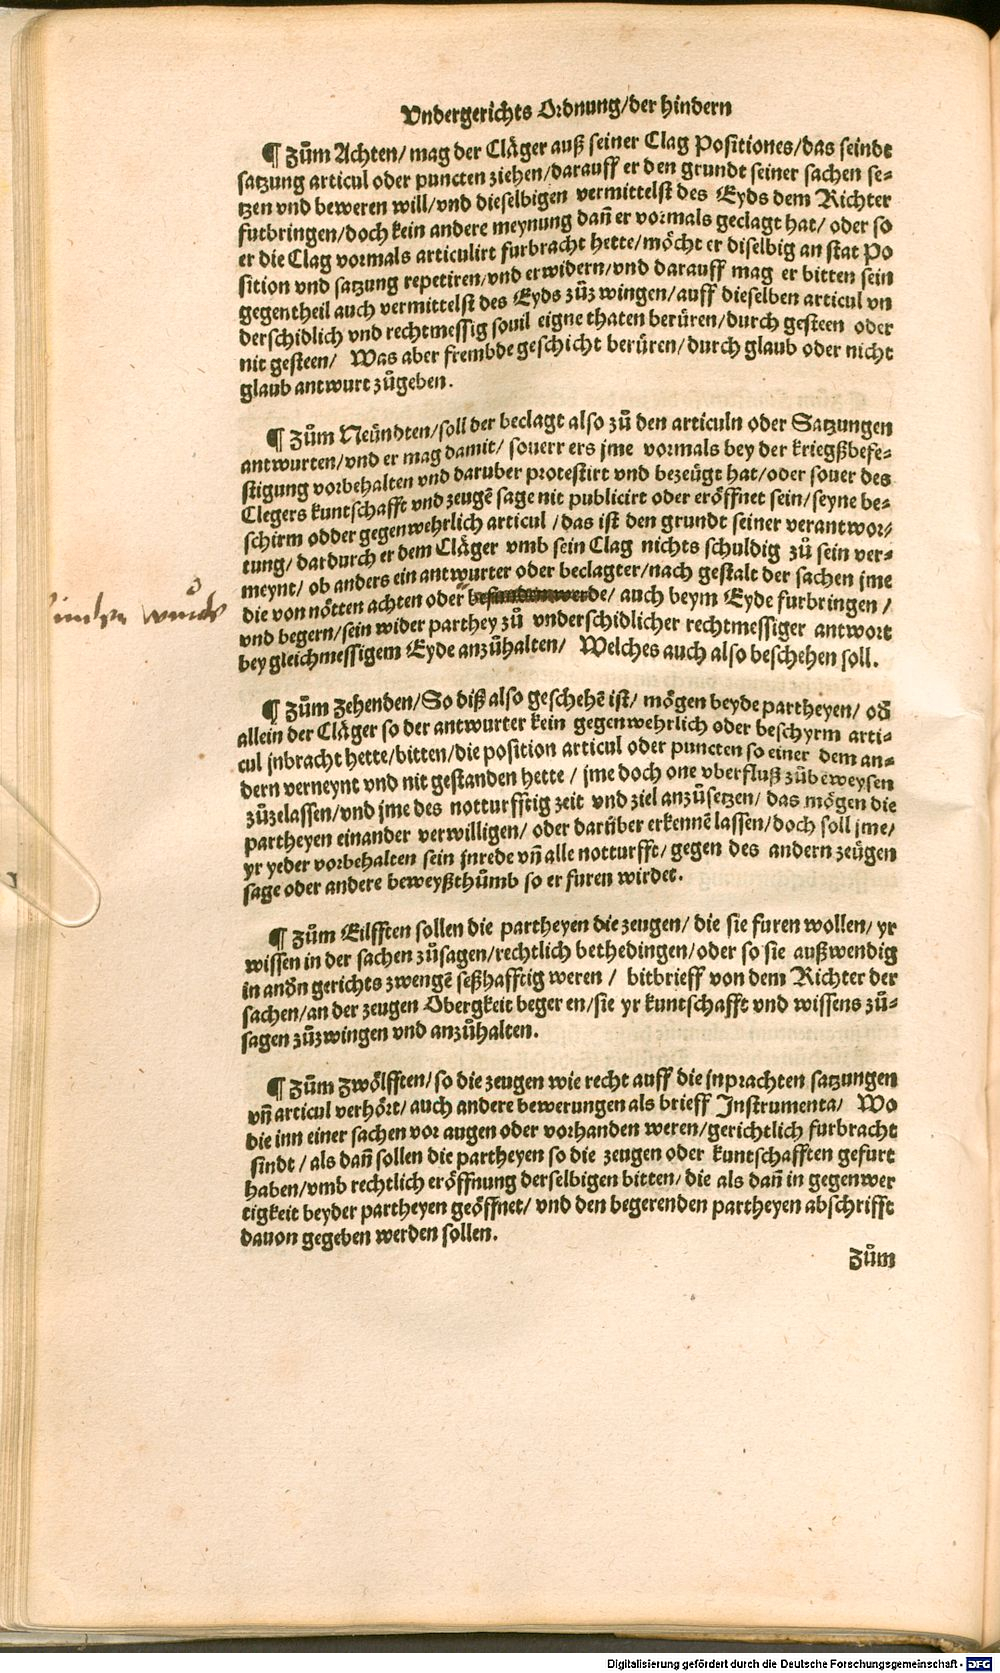 Vndergerichts Ordnung/der hindern
¶ Zům Achten/ mag der Cläger auß seiner Clag Positiones/das seindt
satzung articul oder puncten ziehen/darauff er den grundt seiner sachen se⸗
tzen vnd beweren will/vnd dieselbigen vermittelst des Eyds dem Richter
furbringen/doch kein andere meynung dañ er vormals geclagt hat/ oder so
er die Clag vormals articulirt furbracht hette/möcht er diselbig an stat Po
sition vnd satzung repetiren/vnd erwidern/vnd darauff mag er bitten sein
gegentheil auch vermittelst des Eyds zůzwingen/auff dieselben articul vn
derschidlich vnd rechtmessig souil eigne thaten berüren/durch gesteen oder
nit gesteen/ Was aber frembde geschicht berüren/durch glaub oder nicht
glaub antwurt zůgeben.
¶ Zům Neündten/soll der beclagt also zů den articuln oder Satzungen
antwurten/vnd er mag damit/ souerr ers jme vormals bey der kriegßbefe⸗
stigung vorbehalten vnd daruber protestirt vnd bezeügt hat/oder souer des
Clegers kuntschafft vnd zeugē sage nit publicirt oder eröffnet sein/seyne be⸗
schirm odder gegenwehrlich articul/das ist den grundt seiner verantwor/
tung/dardurch er dem Cläger vmb sein Clag nichts schuldig zů sein ver⸗
meynt/ ob anders ein antwurter oder beclagter/nach gestalt der sachen jme
die von nötten achten oder befinden werde/ auch beym Eyde furbringen/
vnd begern/sein wider parthey zů vnderschidlicher rechtmessiger antwort
bey gleichmessigem Eyde anzůhalten/ Welches auch also beschehen soll.
¶ Zům Zehenden/So diß also geschehē ist/ mögen beyde partheyen/ oď
allein der Cläger so der antwurter kein gegenwehrlich oder beschyrm arti⸗
cul jnbracht hette/bitten/die position articul oder puncten so einer dem an⸗
dern verneynt vnd nit gestanden hette/ jme doch one vberfluß zůbeweysen
zůzelassen/vnd jme des notturfftig zeit vnd ziel anzůsetzen/ das mögen die
partheyen einander verwilligen/ oder darüber erkennē lassen/doch soll jme/
yr yeder vorbehalten sein jnrede vñ alle notturfft/gegen des andern zeügen
sage oder andere beweyßthůmb so er furen wirdet.
¶ Zům Eilfften sollen die partheyen die zeugen/ die sie furen wollen/ yr
wissen in der sachen zůsagen/rechtlich bethedingen/oder so sie außwendig
in anďn gerichts zwengē seßhafftig weren/ bitbrieff von dem Richter der
sachen/an der zeugen Obergkeit begeren/sie yr kuntschafft vnd wissens zů⸗
sagen zůzwingen vnd anzůhalten.
¶ Zům Zwölfften/so die zeugen wie recht auff die jnprachten satzungen
vñ articul verhört/auch andere bewerungen als brieff Instrumenta/ Wo
die inn einer sachen vor augen oder vorhanden weren/gerichtlich furbracht
sindt/als dañ sollen die partheyen so die zeugen oder kuntschafften gefurt
haben/vmb rechtlich eröffnung derselbigen bitten/die als dañ in gegenwer
tigkeit beyder partheyen geöffnet/ vnd den begerenden partheyen abschrifft
dauon gegeben werden sollen.
Zům
Digitalisierung gefördert durch die Deutsche Forschungsgemeinschaft - DFG